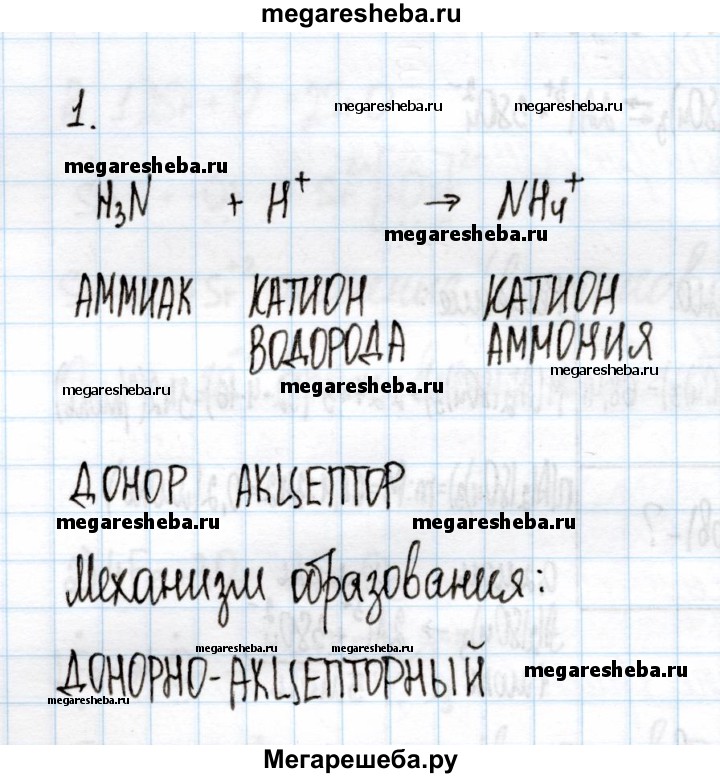 megaresheba.ru
1.
megaresheba.ru megaresheba.ru
megaresheba.ru
H₃N + H⁺ → NH₄⁺
megaresheba.ru
АММИАК КАТИОН КАТИОН
ВОДОРОДА АММОНИЯ
megaresheba.ru megaresheba.ru megaresheba.ru
ДОНОР АКЦЕПТОР
megaresheba.ru megaresheba.ru
Механизм образования:
megaresheba.ru megaresheba.ru
ДОНОРНО-АКЦЕПТОРНЫЙ megaresheba.ru
megaresheba.ru
Мегарешеба.ру